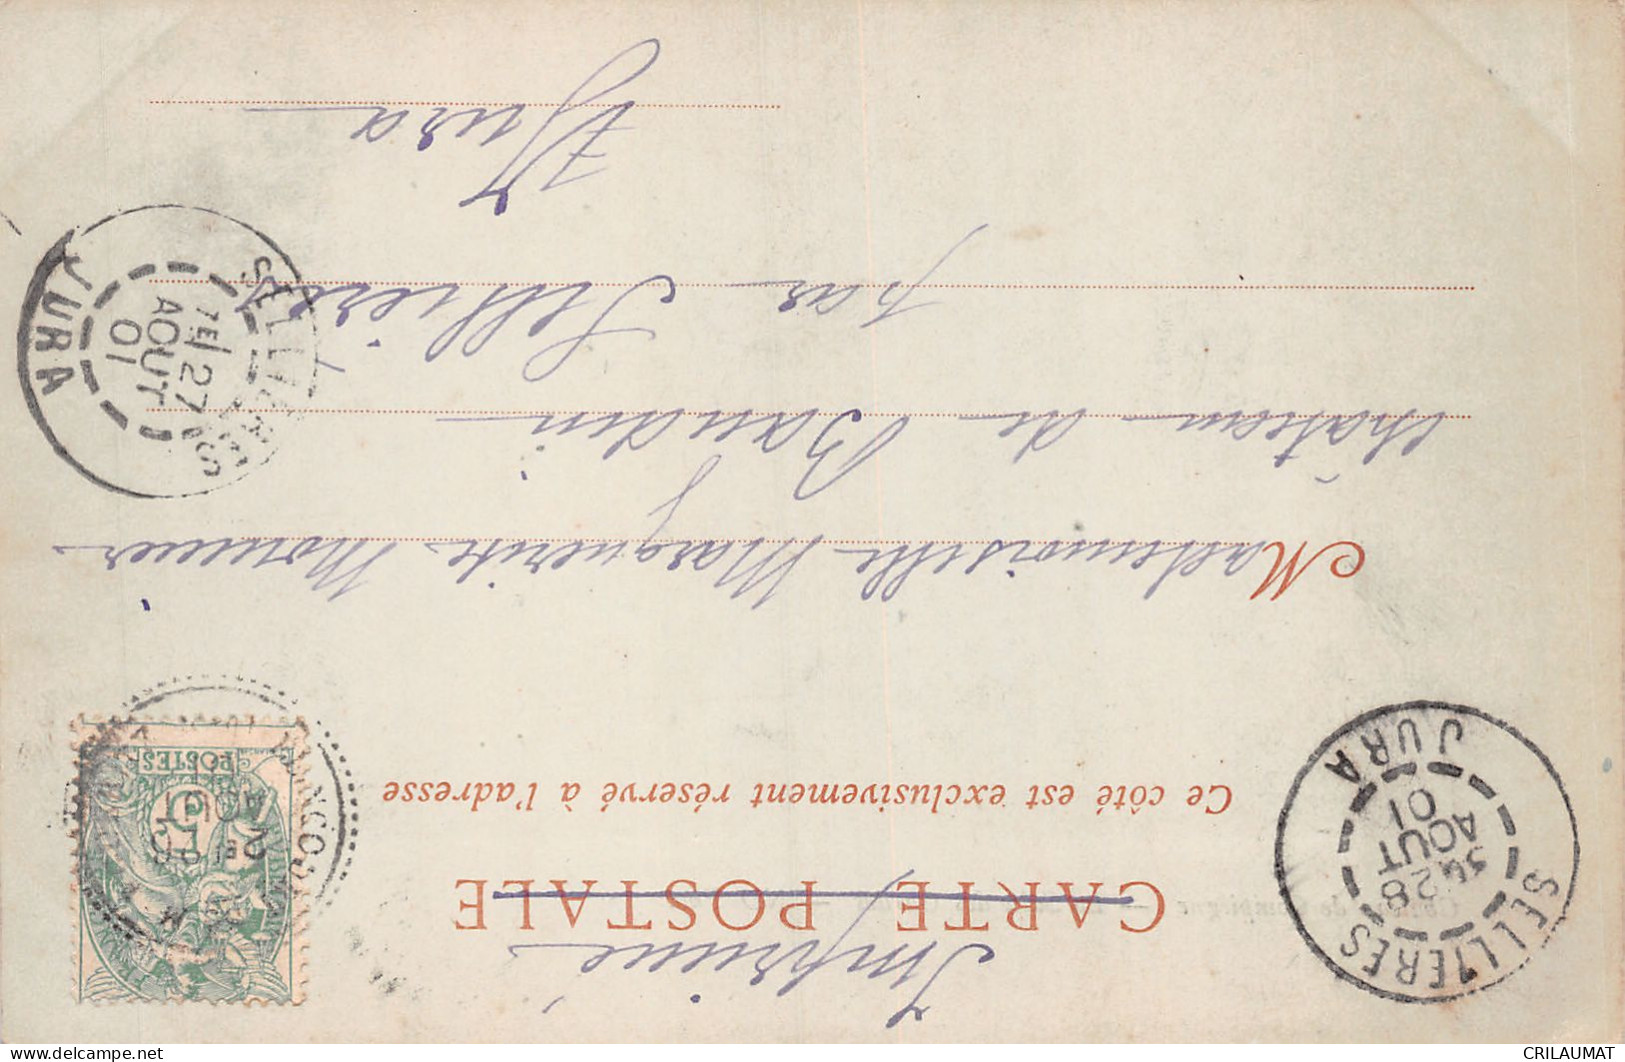 Imprimé
CARTE POSTALE
Ce côté est exclusivement réservé à l'adresse
Mademoiselle Marguerite Monnier
château de Baudin
par Sellières
Jura
SELLIERES
28
AOUT
01
JURA
POSTES
5
AOUT
SELLIERES
1E/27
AOUT
01
JURA
delcampe.net
CRILAUMAT